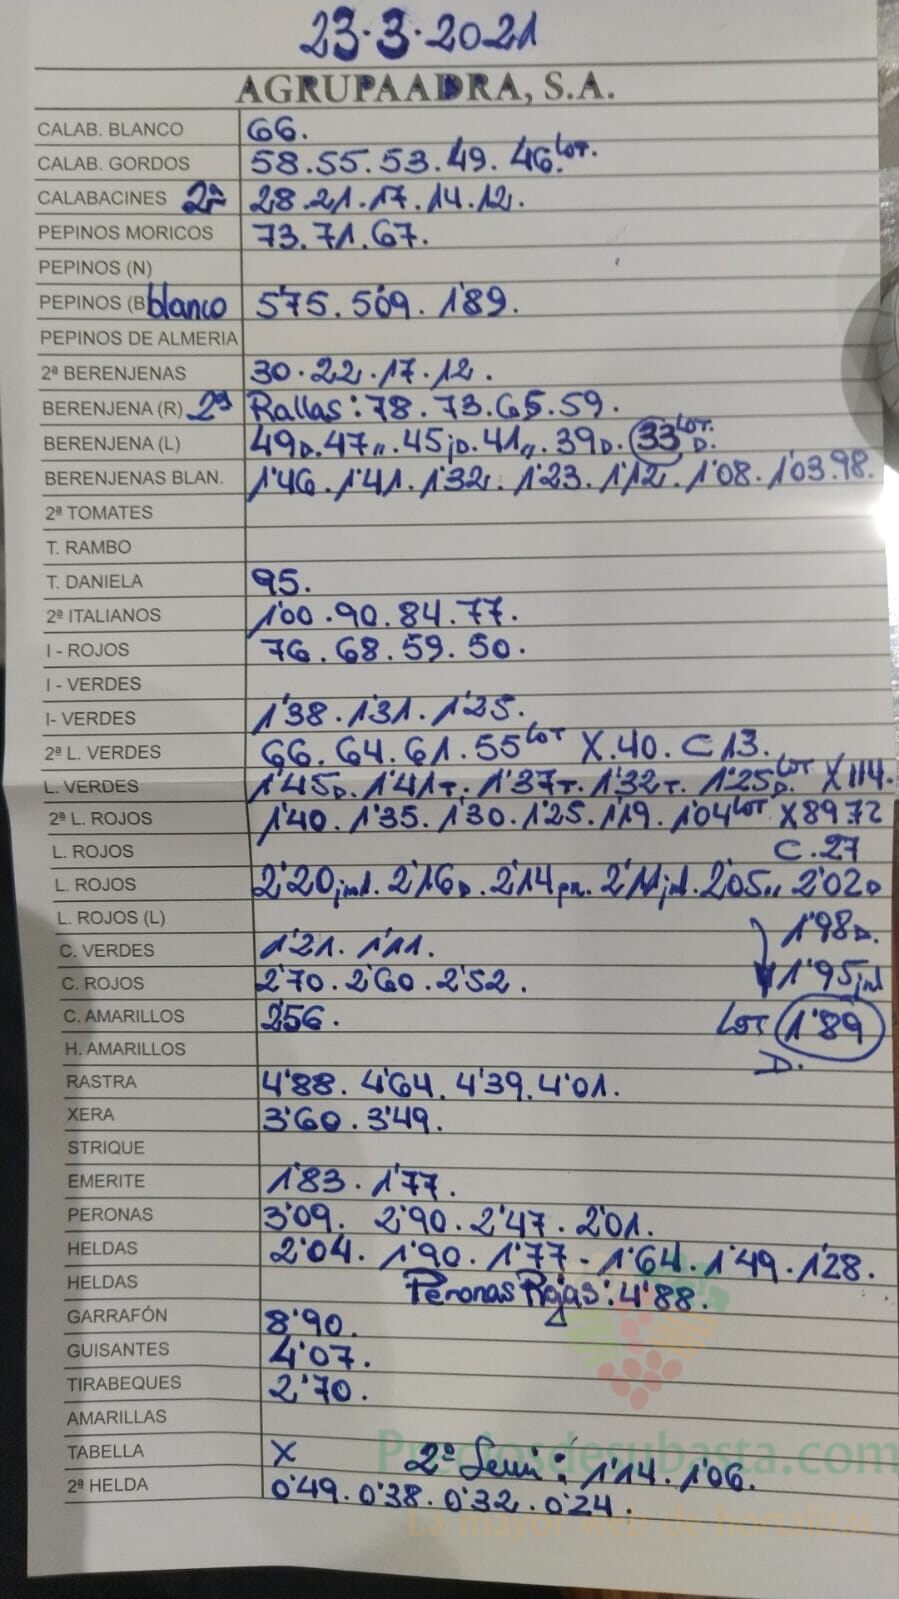 23.3.2021
AGRUPAADRA, S.A.
CALAB. BLANCO 66.
CALAB. GORDOS 58.55.53.49.46 LOT.
CALABACINES 2ª 28.21.17.14.12.
PEPINOS MORICOS 73.71.67.
PEPINOS (N)
PEPINOS (B blanco 5'75. 5'09. 1'89.
PEPINOS DE ALMERIA
2ª BERENJENAS 30.22.17.12.
BERENJENA (R) 2ª Rallas: 78.73.65.59.
BERENJENA (L) 49D.47".45jD.41".39D. 33 LOT. D.
BERENJENAS BLAN. 1'46.1'41.1'32.1'23.1'12.1'08.1'03.98.
2ª TOMATES
T. RAMBO
T. DANIELA 95.
2ª ITALIANOS 1'00.90.84.77.
I - ROJOS 76.68.59.50.
I - VERDES
I- VERDES 1'38.1'31.1'25.
2ª L. VERDES 66.64.61.55 LOT X.40. C13.
L. VERDES 1'45D.1'41T.1'37T.1'32T. 1'25D. LOT X114.
2ª L. ROJOS 1'40.1'35.1'30.1'25.1'19.1'04 LOT X8972
L. ROJOS C.27
L. ROJOS 2'20jml. 2'16D. 2'14pn. 2'11jml. 2'05" 2'02D
L. ROJOS (L) 1'98D.
C. VERDES 1'21. 1'11.
C. ROJOS 2'70.2'60.2'52. 1'95jml
C. AMARILLOS 2'56. LOT 1'89
H. AMARILLOS D.
RASTRA 4'88. 4'64. 4'39.4'01.
XERA 3'60.3'49.
STRIQUE
EMERITE 1'83.1'77.
PERONAS 3'09. 2'90.2'47.2'01.
HELDAS 2'04. 1'90.1'77-1'64.1'49.1'28.
HELDAS Peronas Rojas: 4'88.
GARRAFÓN 8'90.
GUISANTES 4'07.
TIRABEQUES 2'70.
AMARILLAS
Preciosdesubasta.com
TABELLA X 2ª Semi: 1'14. 1'06.
2ª HELDA 0'49.0'38.0'32.0'24.
La mayor web de hortalizas